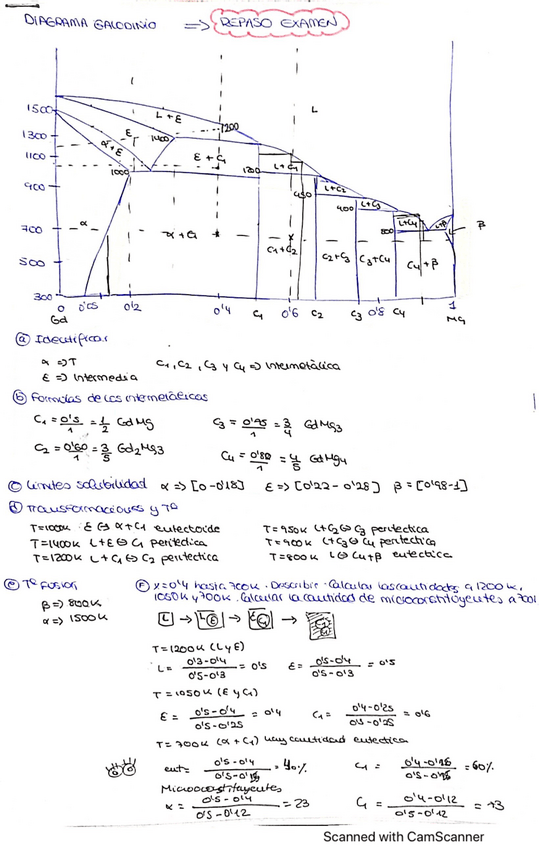 DIAGRAMA GALODINIO => REPASO EXAMEN
1500
1300
1100
900
700
500
300
L+E
E
1400
1200
L
α+E
E+C₁
1000
1200
L+C₁
L+C₂
950
L+C₃
900
L+C₄
800
L+β
β
α
α+C₁
C₁+C₂
C₂+C₃
C₃+C₄
C₄+β
0 0'05 0'2 0'4 C₁ 0'6 C₂ C₃ 0'8 C₄ 1
Gd MG
a) Identificar
α => T C₁, C₂, C₃ y C₄ => Intermetálica
E => Intermedia
b) Formulas de los intermetálicos
C₁ = 0'5/1 = 1/2 GdMg C₃ = 0'75/1 = 3/4 GdMg3
C₂ = 0'60/1 = 3/5 Gd2Mg3 C₄ = 0'80/1 = 4/5 GdMg4
c) Limites solubilidad α => [0-0'18] E => [0'22-0'28] β = [0'98-1]
d) Transformaciones y Tª
T=1000K E <=> α+C₁ eutectoide T=950K L+C₂ <=> C₃ peritectica
T=1400K L+E <=> C₁ peritectica T=900K L+C₃ <=> C₄ peritectica
T=1200K L+C₁ <=> C₂ peritectica T=800K L <=> C₄+β eutectica
e) Tª Fusion
β => 800K
α => 1500K
f) x=0'4 hasta 700K. Describir. Calcular las cantidades a 1200K,
1050K y 700K. Calcular la cantidad de microconstituyentes a 700K
L → L E → E C₁ →
T=1200K (L y E)
L = 0'3-0'4/0'5-0'3 = 0'5 E = 0'5-0'4/0'5-0'3 = 0'5
T=1050K (E y C₁)
E = 0'5-0'4/0'5-0'25 = 0'4 C₁ = 0'4-0'25/0'5-0'25 = 0'6
T=700K (α+C₁) hay cantidad eutectica
eut = 0'5-0'4 = 40% C₁ = = 60%
Microconstituyentes
α = 0'5-0'4/0'5-0'12 = 23 C₁ = 0'4-0'12/0'5-0'12
Scanned with CamScanner